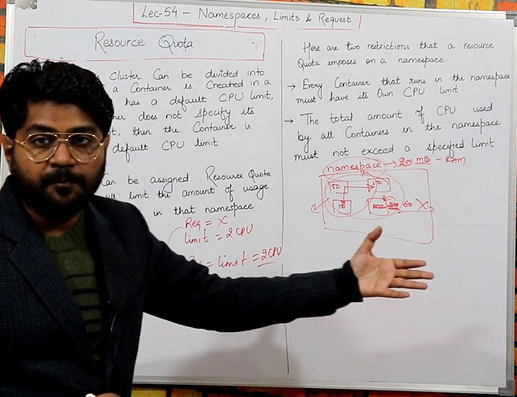 Lec-54 - Namespaces, Limits & Request
Resource Quota
Cluster Can be divided into
a Container is Created in a
has a default CPU limit,
does not specify its
then the Container is
default CPU limit
Can be assigned Resource Quota
limit the amount of usage
in that namespace
Req = X
limit = 2 CPU
= limit = 2 CPU
Here are two restrictions that a resource
Quota imposes on a namespace
→ Every Container that runs in the namespace
must have its Own CPU limit
→ The total amount of CPU used
by all Containers in the namespace
must not exceed a specified limit
namespace → 200 mB -
50
60 X